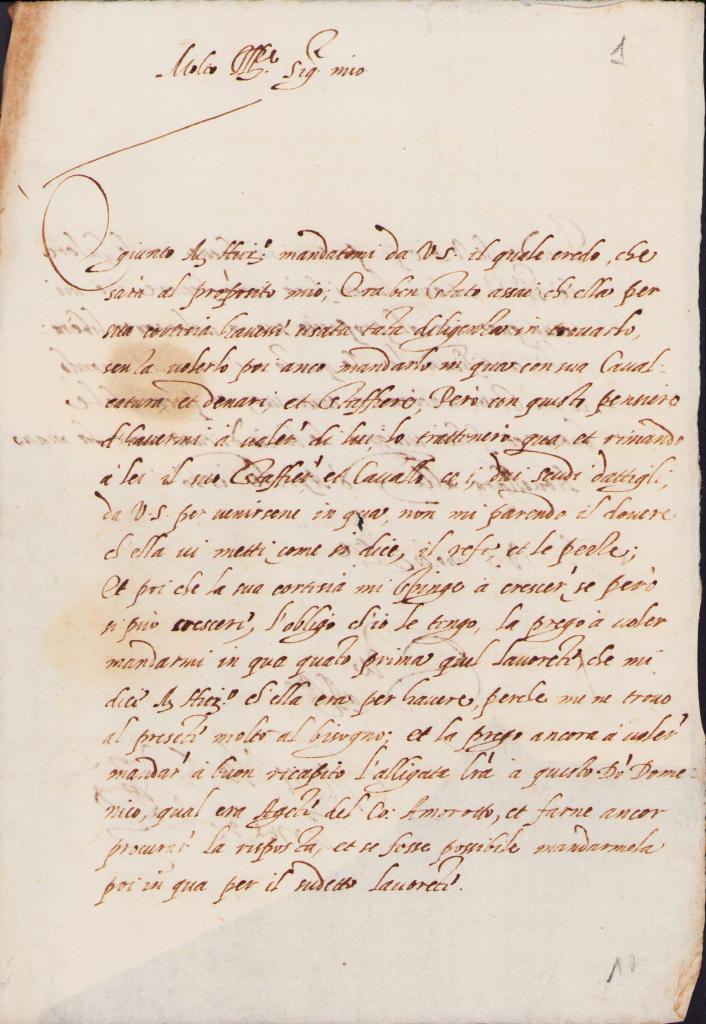 1
Molto Ill.re Sig.r mio
È giunto M. Hier.º mandatomi da V.S. il quale credo, che
sarà al proposito mio, Era ben stato assai ch'ella per
sua cortesia havesse usata tāta diligenza in trovarlo,
senza volerlo poi anco mandarlo in qua con sua Caval-
catura, et denari, et staffiere, Però con questo pensiero
d'havermi à valer di lui, lo trattenerò qua et rimando
à lei il suo staffier et Cavallo dui scudi dattigli,
da V.S. per venirsene in qua, non mi parendo il dovere
ch'ella vi metti, come si dice, il refe, et le perle;
Et poi che la sua cortesia mi spinge à crescer, se però
si può crescere, l'obligo ch'io le tengo, la prego à voler
mandarmi in qua quāto prima quel lavorete, che mi
dice M. Hier.º ch'ella era per havere, perche me ne trovo
al presēte molto al bisogno; et la prego ancora à voler
mandar à buon ricapito l'alligata lrā à questo Dō Dome-
nico, qual era Agēte del Co: Amorotto, et farne ancor
procurar la risposta, et se fosse possibile mandarmela
poi in qua per il sudetto lavorete.
10